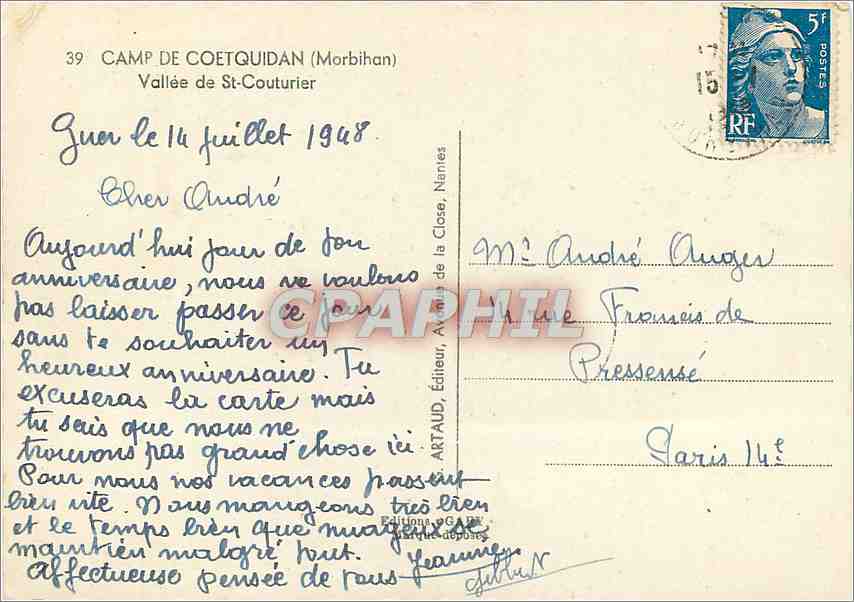 39 CAMP DE COETQUIDAN (Morbihan)
Vallée de St-Couturier
5F
POSTES
RF
15
Guer le 14 Juillet 1948
Cher André
Aujourd'hui jour de ton
anniversaire, nous ne voulons
pas laisser passer ce jour
sans te souhaiter un
heureux anniversaire. Tu
excuseras la carte mais
tu sais que nous ne
trouvons pas grand'chose ici.
Pour nous nos vacances passent
bien vite. Nous mangeons très bien
et le temps bien que nuageux se
maintien malgré tout.
Affectueuse pensée de tous Jeanne
ARTAUD, Éditeur, Avenue de la Close, Nantes
Editions "GABY"
Marque déposée
Mr André Auger
14 rue Francis de
Pressensé
Paris 14e
CPAPHIL